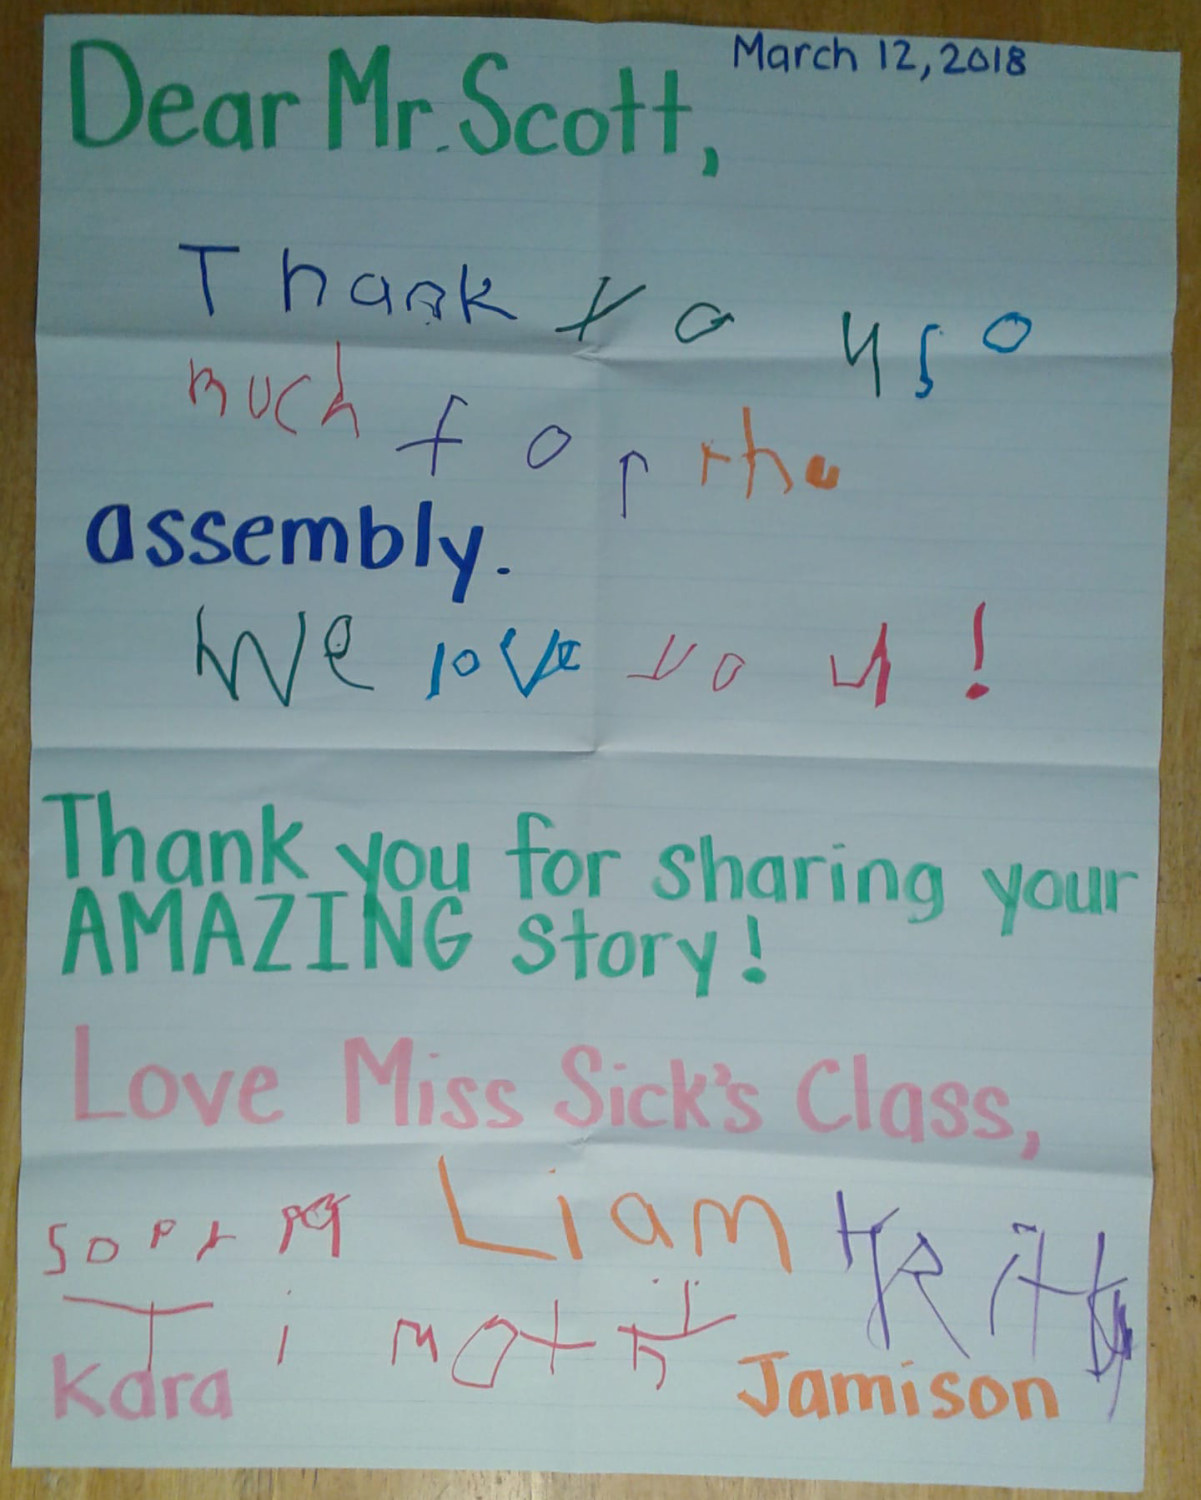 March 12, 2018
Dear Mr. Scott,
Thank you so
much for the
assembly.
We love you!
Thank you for sharing your
AMAZING story!
Love Miss Sick's Class,
Liam
Timothy
Kara
Jamison